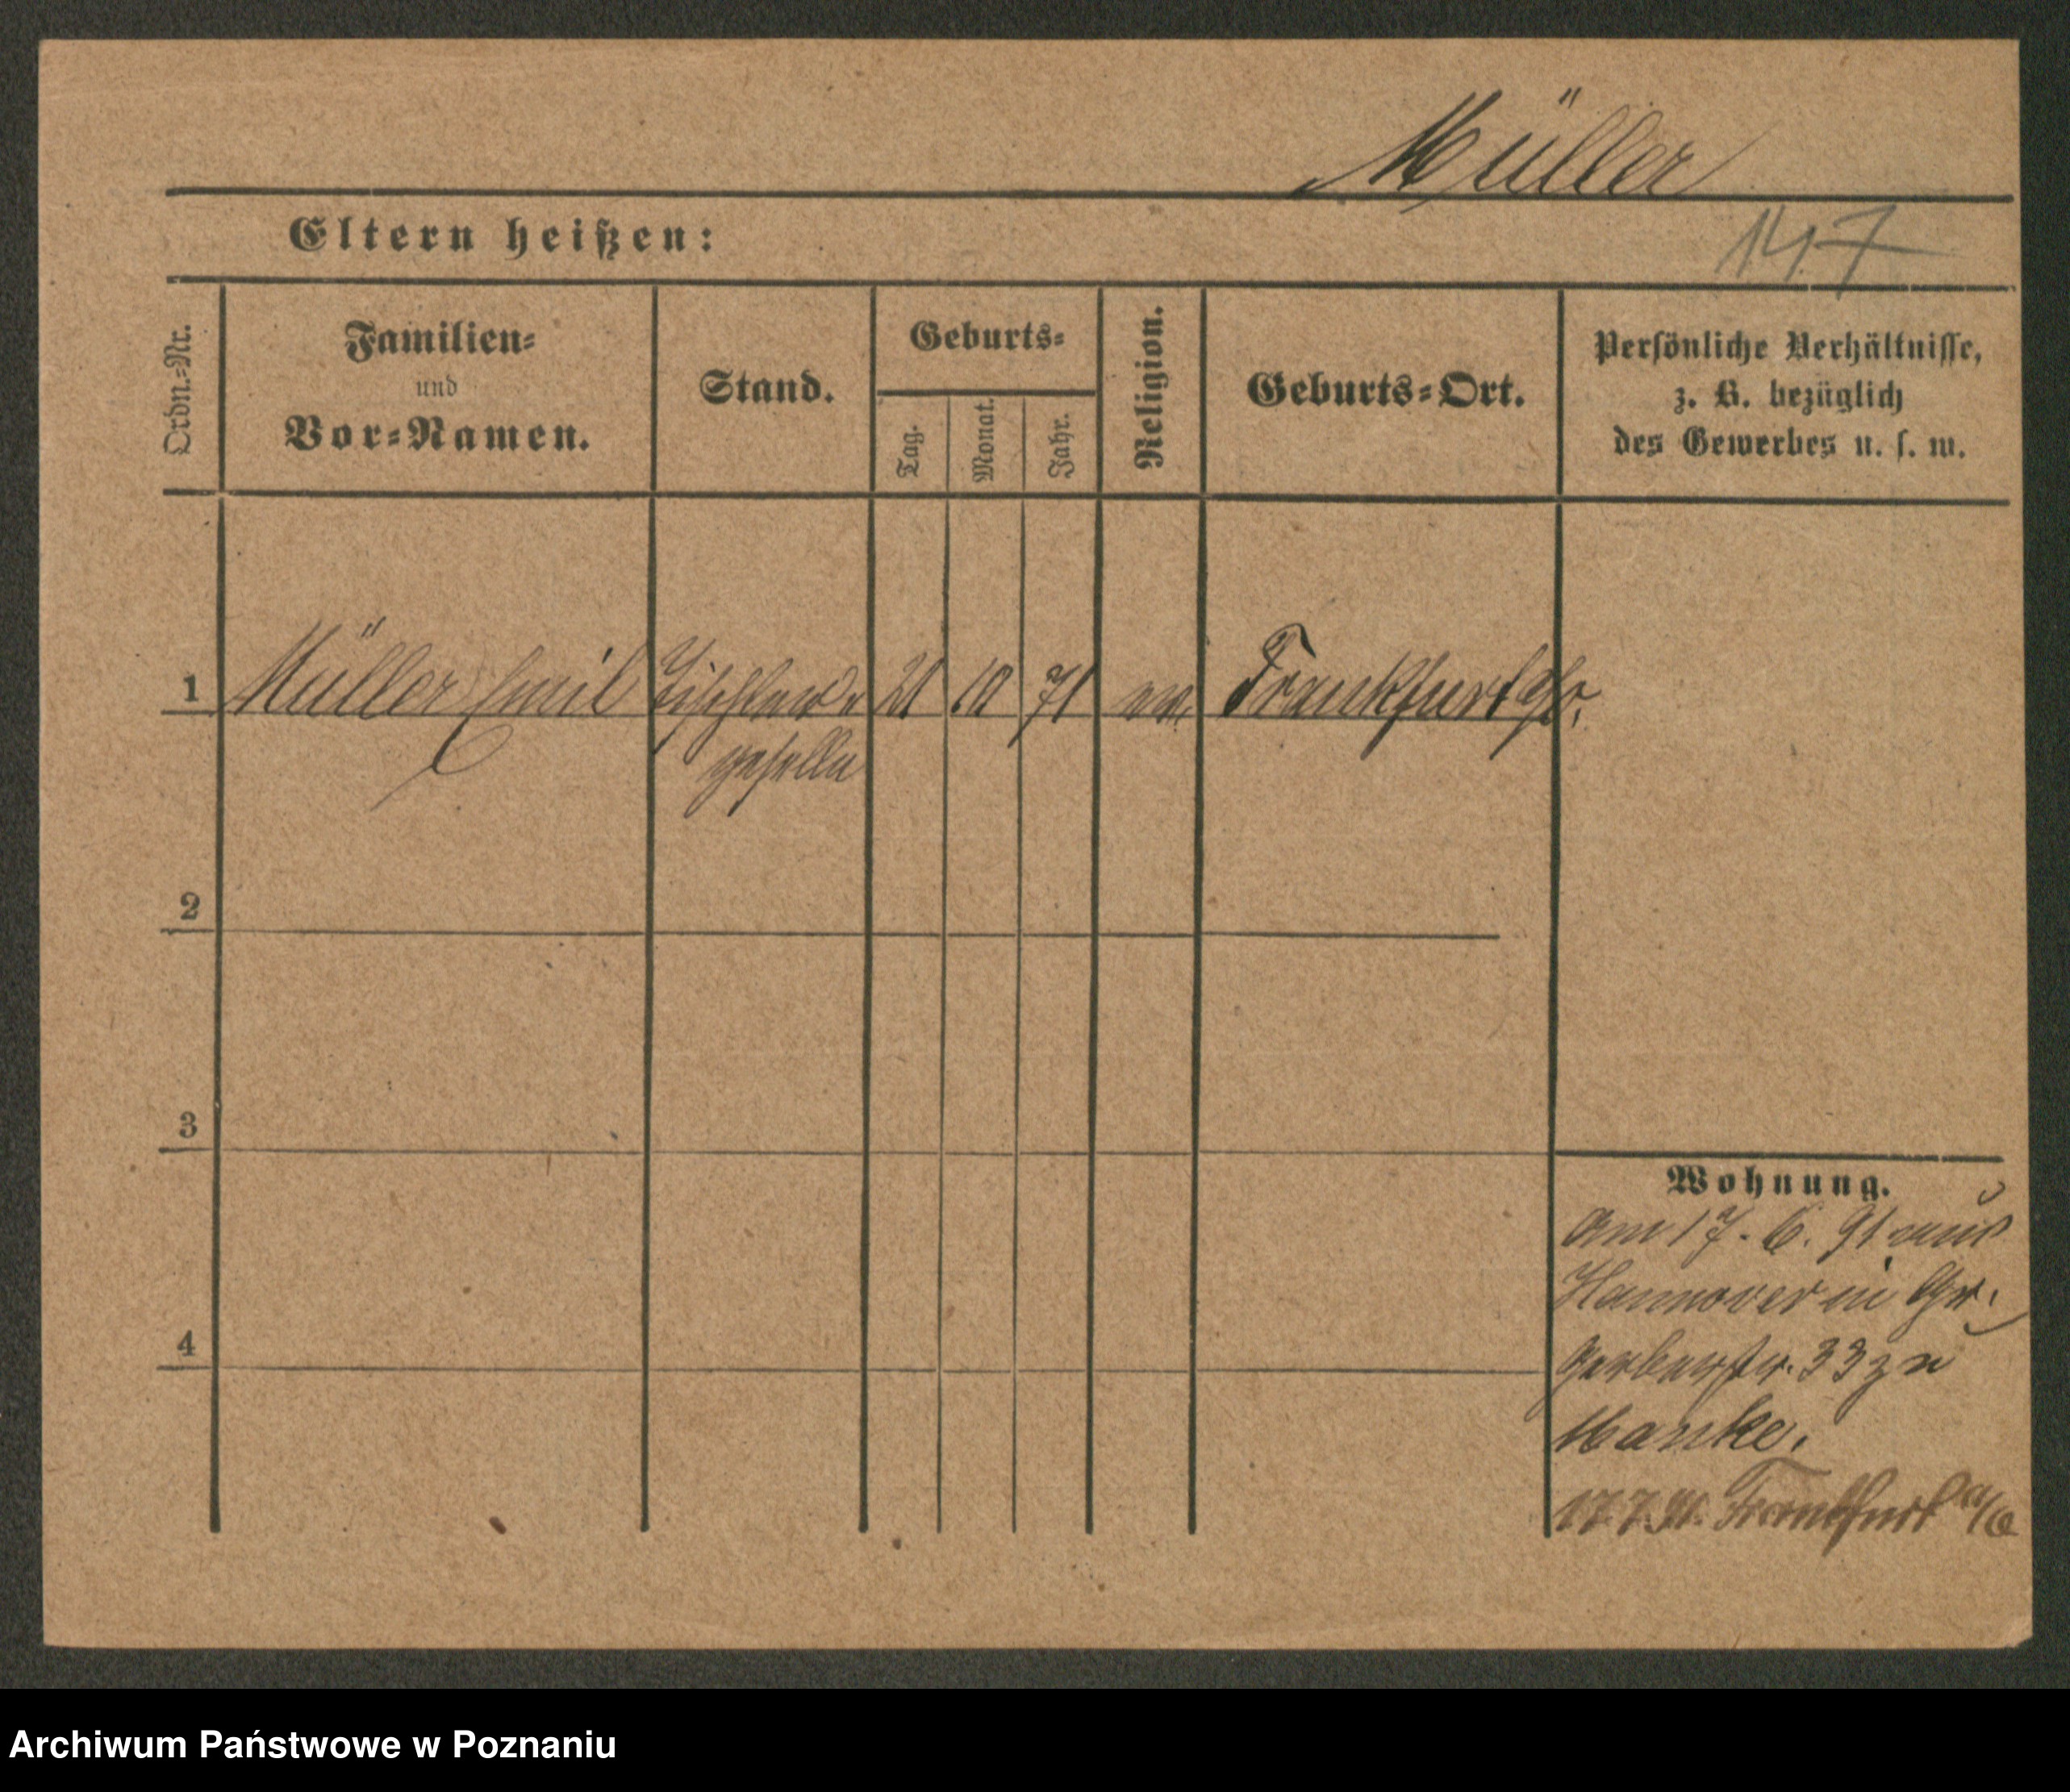 Müller
Eltern heißen:
147
Ordn.-Nr.
Familien-
und
Vor-Namen.
Stand.
Geburts-
Tag.
Monat.
Jahr.
Religion.
Geburts-Ort.
Persönliche Verhältnisse,
z. B. bezüglich
des Gewerbes u. s. w.
1 Müller Emil Tischler- 10 71 ev. Frankfurt
geselle
2
3
4
Wohnung.
Am 17. 6. 91 aus
Hannover in Gr.
Gerberstr. 33 zu
Manke.
17.7.91. Frankfurt a/O
Archiwum Państwowe w Poznaniu